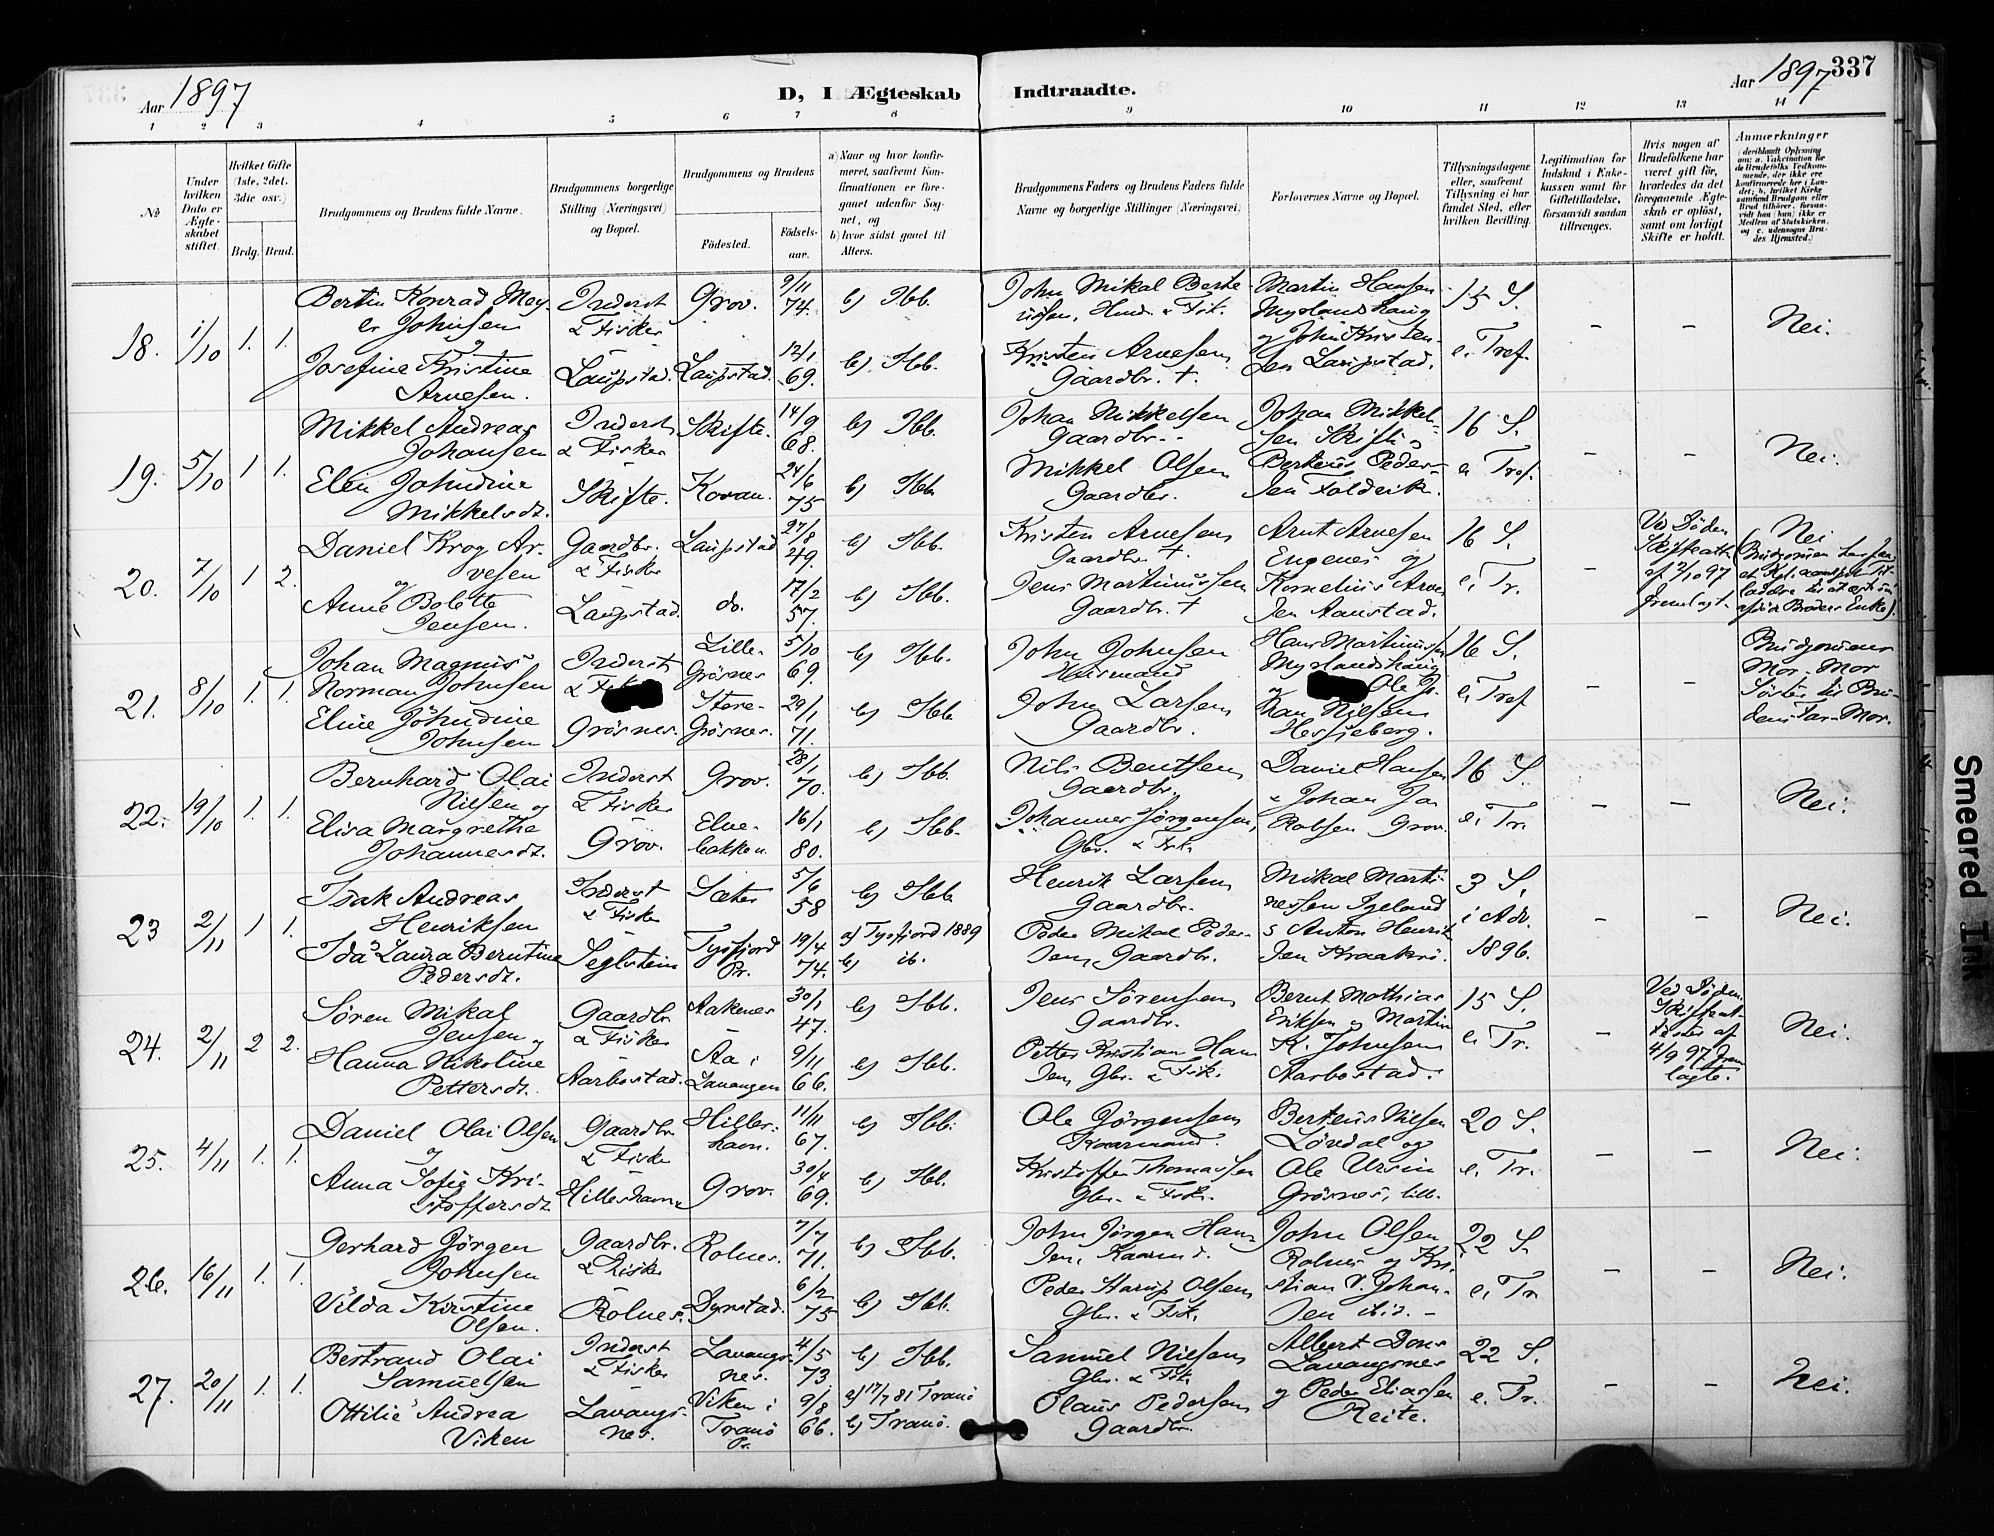 Aar 1897
D, I Ægteskab Indtraadte.
Aar 1897
337
1 2 3 4 5 6 7 8 9 10 11 12 13 14
No
Under hvilken Dato er Ægteskabet stiftet.
Hvilket Gifte (1ste, 2det, 3die osv.)
Brdg. Brud.
Brudgommens og Brudens fulde Navne.
Brudgommens borgerlige Stilling (Næringsvei) og Bopæl.
Brudgommens og Brudens
Födested.
Födselsaar.
a) Naar og hvor konfirmeret, saafremt Konfirmationen er foregaaet udenför Sognet, og
b) hvor sidst gaaet til Alters.
Brudgommens Faders og Brudens Faders fulde Navne og borgerlige Stillinger (Næringsvei)
Forlovernes Navne og Bopæl.
Tillysningsdagene eller, saafremt Tillysning ei har fundet Sted, efter hvilken Bevilling.
Legitimation for Indskud i Enkekassen samt for Giftetilladelse, forsaavidt saadan tiltrænges.
Hvis nogen af Brudefolkene har været gift för, hvorledes da det foregaaende Ægteskab er oplöst, samt om lovligt Skifte er holdt.
Anmærkninger
18. 1/10 1. 1.
Bertin Konrad Mey-
er Johnsen
og
Josefine Kristine
Arnesen.
Inderst
& Fisker
Laupstad.
Grov. 9/11 74. b) Ibb.
Laupstad. 12/1 69. b) Ibb.
John Mikal Berte
ussen, Husm. & Fisk.
Kristen Arnesen
Gaardbr. †.
Martin Hansen
Myrlandshaug
og John Kristen-
sen Laupstad.
15 S.
e. Tref.
– – Nei.
19. 5/10 1 1.
Mikkel Andreas
Johansen
Elen Johndine
Mikkelsdt.
Inderst
& Fisker
Skifte.
Skifte. 14/9 68. b) Ibb.
Kovan. 24/6 75 b) Ibb
Johan Mikkelsen
Gaardbr.
Mikkel Olsen
Gaardbr.
Johan Mikkel-
sen Skifte og
Berteus Peder-
sen Foldvik.
16 S.
e. Tref.
– – Nei.
20. 7/10 1 2.
Daniel Krog Ar-
vesen
og
Anne Bolette
Jensen.
Gaardbr.
& Fisker
Laupstad.
Laupstad 27/8 49. b) Ibb.
do. 17/2 57. b) Ibb.
Kristen Arnesen
Gaardbr. †
Jens Martinussen
Gaardbr. †
Arnt Arnesen
Engenes og
Kornelius Arne
sen Aanstad.
16 S.
e. Tr.
–
Ved Döden
Skifteatt.
af 2/10 97
fremlagt.
Nei
21. 8/10 1. 1.
Johan Magnus
Norman Johnsen
Eline Johndine
Johnsen
Inderst
&
Grösnes.
Lille-
Grösnes 5/10 69. b) Ibb.
Store-
Grösnes. 29/1 71. b) Ibb
John Johnsen
Husmand
John Larsen
Gaardbr.
Hans Martinussen
Myrlandshaug
og Ole Jo-
han Nilsen
Hessjeberg.
16 S.
e. Tref
– –
Brudgommens
Mor-Mor
Söster til Bru-
dens Far-Mor.
22. 19/10 1. 1.
Bernhard Olai
Nilsen og
Elisa Margrethe
Johannesdt.
Inderst
& Fisker
Grov.
Grov. 28/1 70. b) Ibb.
Elve-
bakken. 16/1 80. b) Ibb.
Nils Bentsen
Gaardbr.
Johannes Jörgensen,
Gbr. & Fisk.
Daniel Hansen
& Johan Ja
kobsen Grov.
16 S.
e. Tr.
– – Nei.
23 2/11 1 1.
Isak Andreas
Henriksen
Ida Laura Berntine
Pedersdt.
Inderst
& Fisker
Seglstein
Sæter 5/6 58 b) Ibb
Tysfjord
Pr. 19/4 74. a) Tysfjord 1889
b) ib.
Henrik Larsen
Gaardbr.
Peder Mikal Peder-
sen, Gaardbr.
Mikal Marti
nessen Igeland
& Anton Henrik
sen Kraakrö.
3 S.
i Adv.
1896.
– – Nei.
24. 2/11 2 2.
Sören Mikal
Jensen og
Hanna Nikoline
Pettersdt.
Gaardbr.
& Fisker
Aarbostad.
Aakenes 30/1 47. b) Ibb.
Aa i
Lavangen 9/11 66. b) Ibb.
Jens Sörensen
Gaardbr.
Petter Kristian Han
sen, Gbr. & Fisk.
Bernt Mathias
Eriksen og Martin
K. Johnsen
Aarbostad.
15 S.
e. Tr.
–
Ved Döden
Skifteat-
tester af
4/9 97 frem
lagte.
Nei.
25. 4/11 1. 1.
Daniel Olai Olsen
og
Anna Sofie Kri-
stoffersdt.
Gaardbr
& Fisker
Hilleshamn
Hilles-
hamn. 11/11 67. b) Ibb.
Grov. 30/4 69. b) Ibb.
Ole Jörgensen
Kaarmand.
Kristoffer Thomassen
Gbr. & Fisk.
Berteus Nilsen
Lövdal og
Ole Ursin
Grösnes, lill.
20 S.
e. Tr.
– – Nei.
26. 16/11 1. 1.
Gerhard Jörgen
Johnsen
Vilda Kirstine
Olsen.
Gaardbr.
& Fisker
Rolnes.
Rolnes. 7/7 71. b) Ibb.
Dyrstad. 6/2 75 b) Ibb.
John Jörgen Han-
sen, Kaarmd.
Peder Hansen Olsen
Gbr. & Fisk.
John Olsen
Rolnes og Kri-
stian V. Johan-
sen ibid.
22 S.
e. Tr
– – Nei.
27. 20/11 1. 1.
Bertrand Olai
Samuelsen
Ottilie Andrea
Viken
Inderst
& Fisker
Lavangs-
nes.
Lavangs-
nes. 4/5 73 b) Ibb.
Viken i
Tranö
Pr. 9/8 66. a) 17/7 81 Tranö
b) Tranö.
Samuel Nilsen
Gbr. & Fisk.
Olaus Pedersen
Gaardbr.
Albert Dons
Lavangsnes
og Peder Eliassen
Reite.
22 S.
e. Tr.
– – Nei.
Smeared Ink